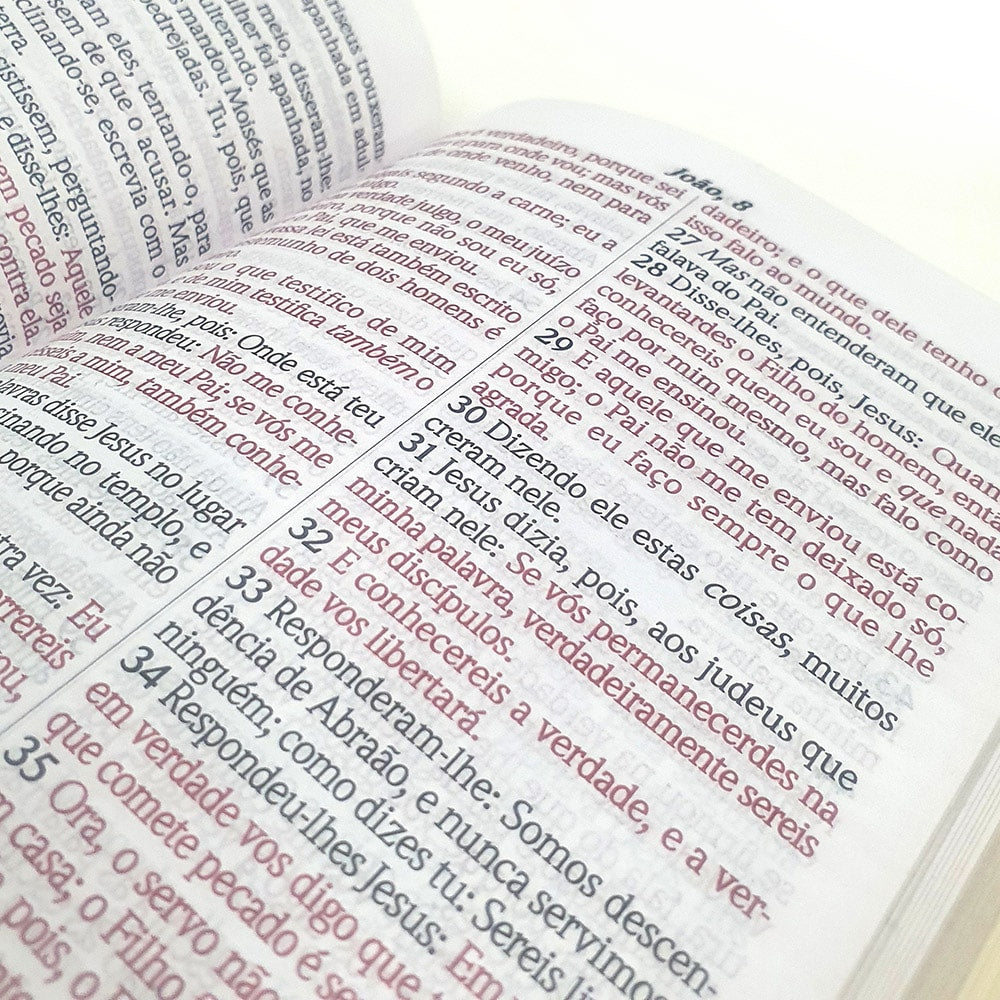 riseus trouxeram
apanhada em adul
meio, disseram-lhe:
lher foi apanhada, no
ulterando.
mandou Moisés que as
pedrejadas. Tu, pois, que
am eles, tentando-o, para
sem de que o acusar. Mas
clinando-se, escrevia com o
terra.
istissem, perguntando-
e disse-lhes: Aquele
em pecado seja
contra ela.
verdadeiro, porque sei
e para onde vou; mas vós
onde venho, nem para
segundo a carne; eu a
julgo.
verdade julgo, o meu juízo
porque não sou eu só,
que me enviou.
ossa lei está também escrito
temunho de dois homens é
ou o que testifico de mim
de mim testifica também o
me enviou.
pois: Onde está teu
respondeu: Não me conhe-
nem a meu Pai; se vós me
a mim, também conhe-
meu Pai.
avras disse Jesus no lugar
cinando no templo, e
porque ainda não
tra vez: Eu
orrereis
João, 8
dadeiro; e o que dele tenho
isso falo ao mundo.
27 Mas não entenderam que ele
falava do Pai.
28 Disse-lhes, pois, Jesus: Quan
levantardes o Filho do homem, entã
conhecereis quem eu sou e que nada
faço por mim mesmo, mas falo como
o Pai me ensinou.
29 E aquele que me enviou está co-
migo; o Pai não me tem deixado só,
porque eu faço sempre o que lhe
agrada.
30 Dizendo ele estas coisas, muitos
creram nele.
31 Jesus dizia, pois, aos judeus que
criam nele: Se vós permanecerdes na
minha palavra, verdadeiramente sereis
meus discípulos.
32 E conhecereis a verdade, e a ver-
dade vos libertará.
33 Responderam-lhe: Somos descen-
dência de Abraão, e nunca servimos
ninguém; como dizes tu: Sereis li
34 Respondeu-lhes Jesus: Em
em verdade vos digo que t
que comete pecado é se
35 Ora, o servo não
casa; o Filho
pois, o F